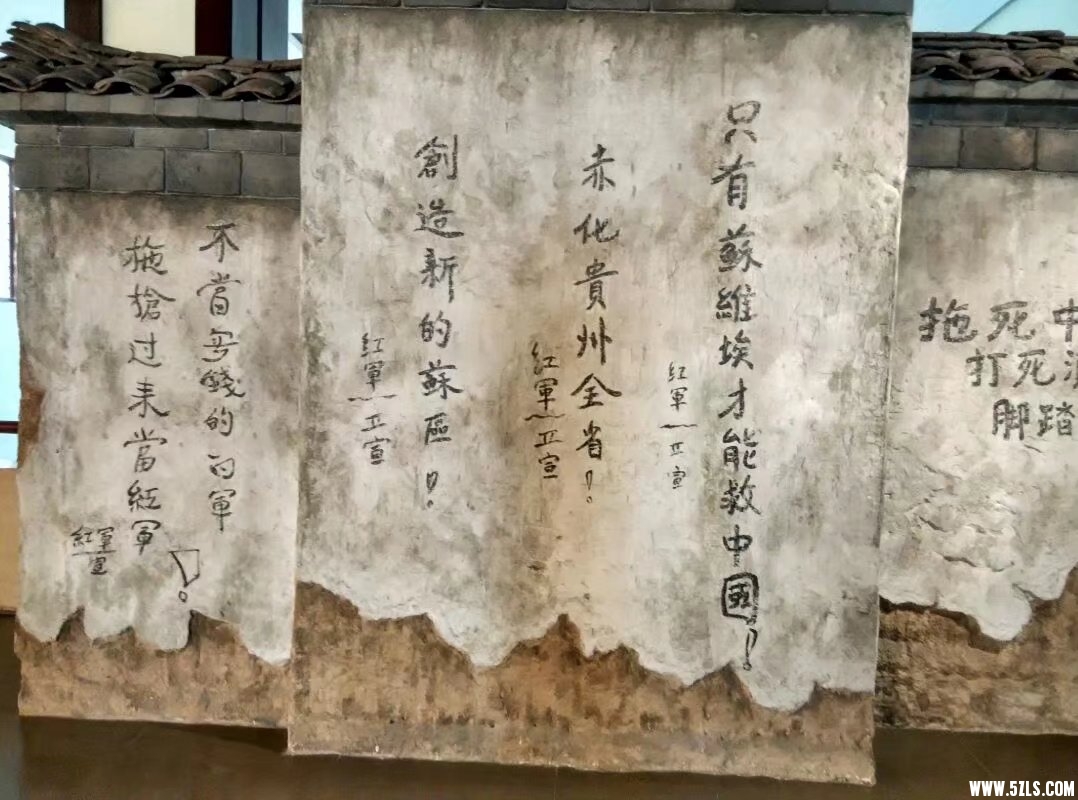 拖死中
打死
脚踏
只有蘇維埃才能救中國！
紅軍～宣
赤化貴州全省！
紅軍～宣
創造新的蘇區！
紅軍～宣
不當无錢的白軍
拖槍过来當紅軍！
紅軍
宣
WWW.5ZLS.COM